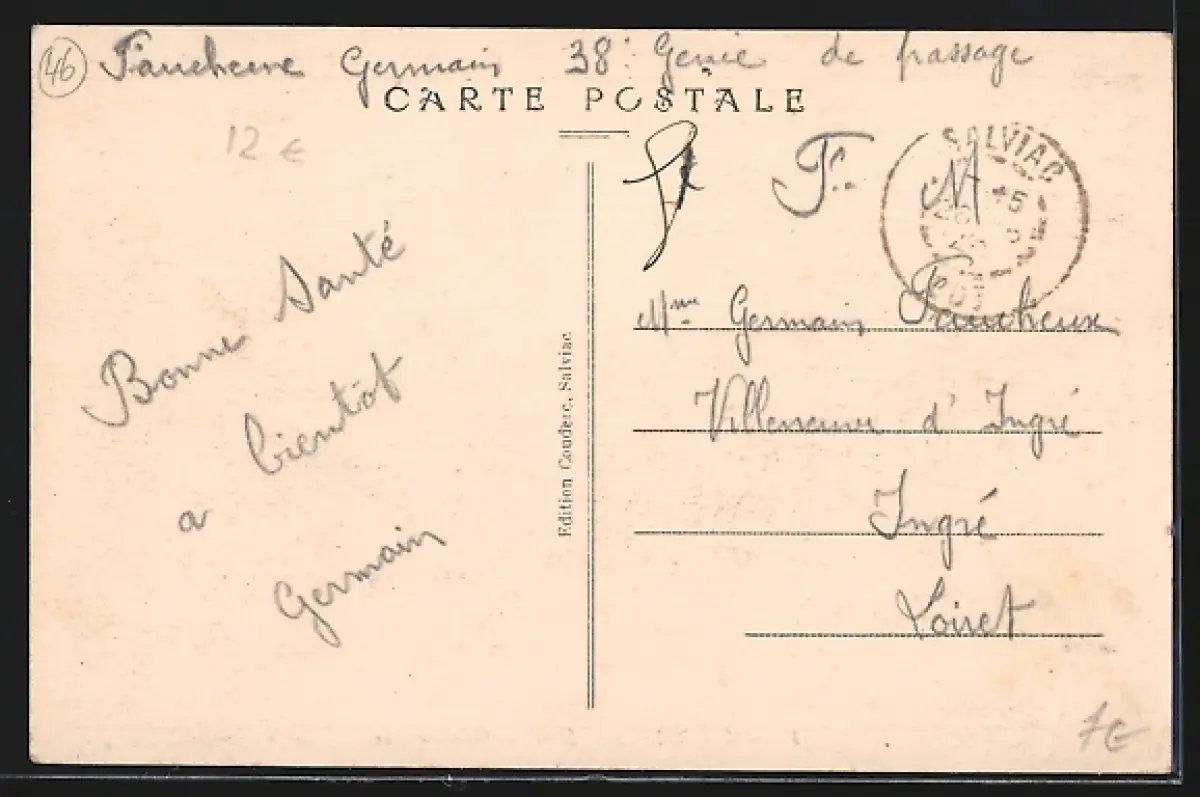 46 Faucheux Germain 38e Genie de passage
CARTE POSTALE
12 €
F. M
SALVIAC
LOT
Bonne Santé
a bientôt
Germain
Edition Couderc, Salviac
Mme Germain Faucheux
Villeneuve d'Ingré
Ingré
Loiret
7€